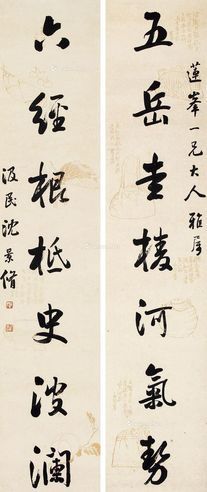 蓮峯一兄大人雅屬
五岳圭棱河氣勢
六經根柢史波瀾
汲民沈景脩